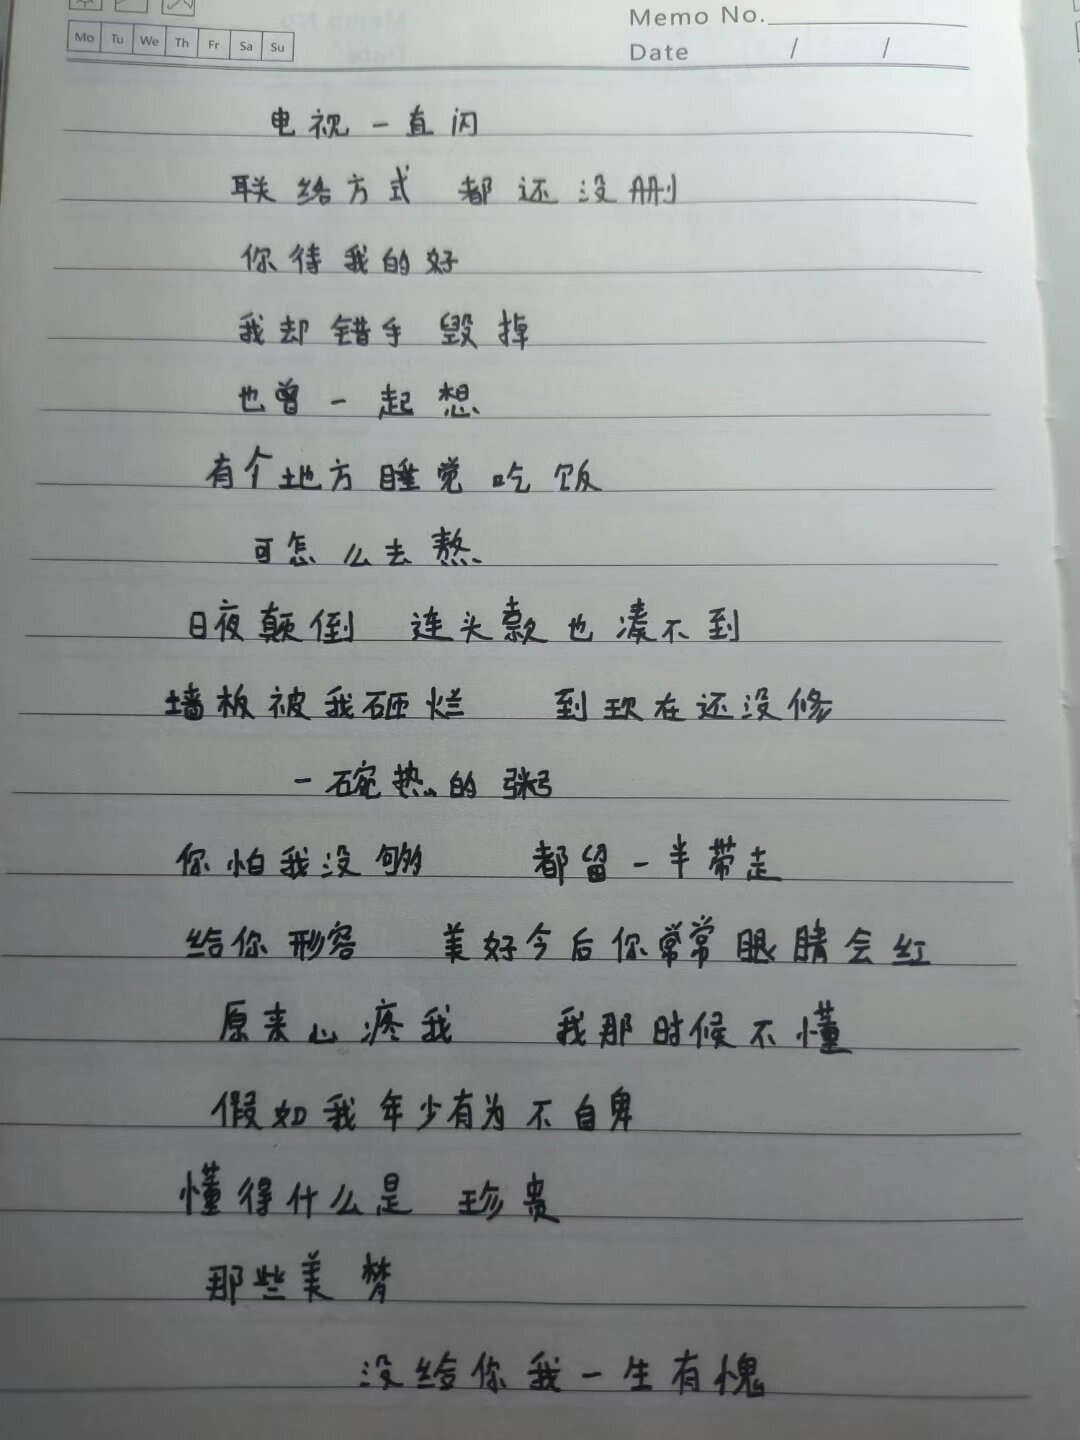 Memo No.
Mo Tu We Th Fr Sa Su
Date / /
电视一直闪
联给方式 都还没删
你待我的好
我却错手毁掉
也曾一起想
有个地方睡觉吃饭
可怎么去熬
日夜颠倒 连头款也凑不到
墙板被我砸烂 到现在还没修
一碗热的粥
你怕我没够 都留一半带走
给你形容 美好今后你常常眼睛会红
原来心疼我 我那时候不懂
假如我年少有为不自卑
懂得什么是 珍贵
那些美梦
没给你我一生有愧